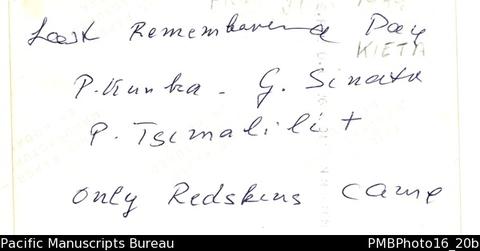 Last Remembarence Day
KIETA
P. Kunka - G. Sinatx
P. Tsimalili +
only Redskins came
Pacific Manuscripts Bureau
PMBPhoto16_20b